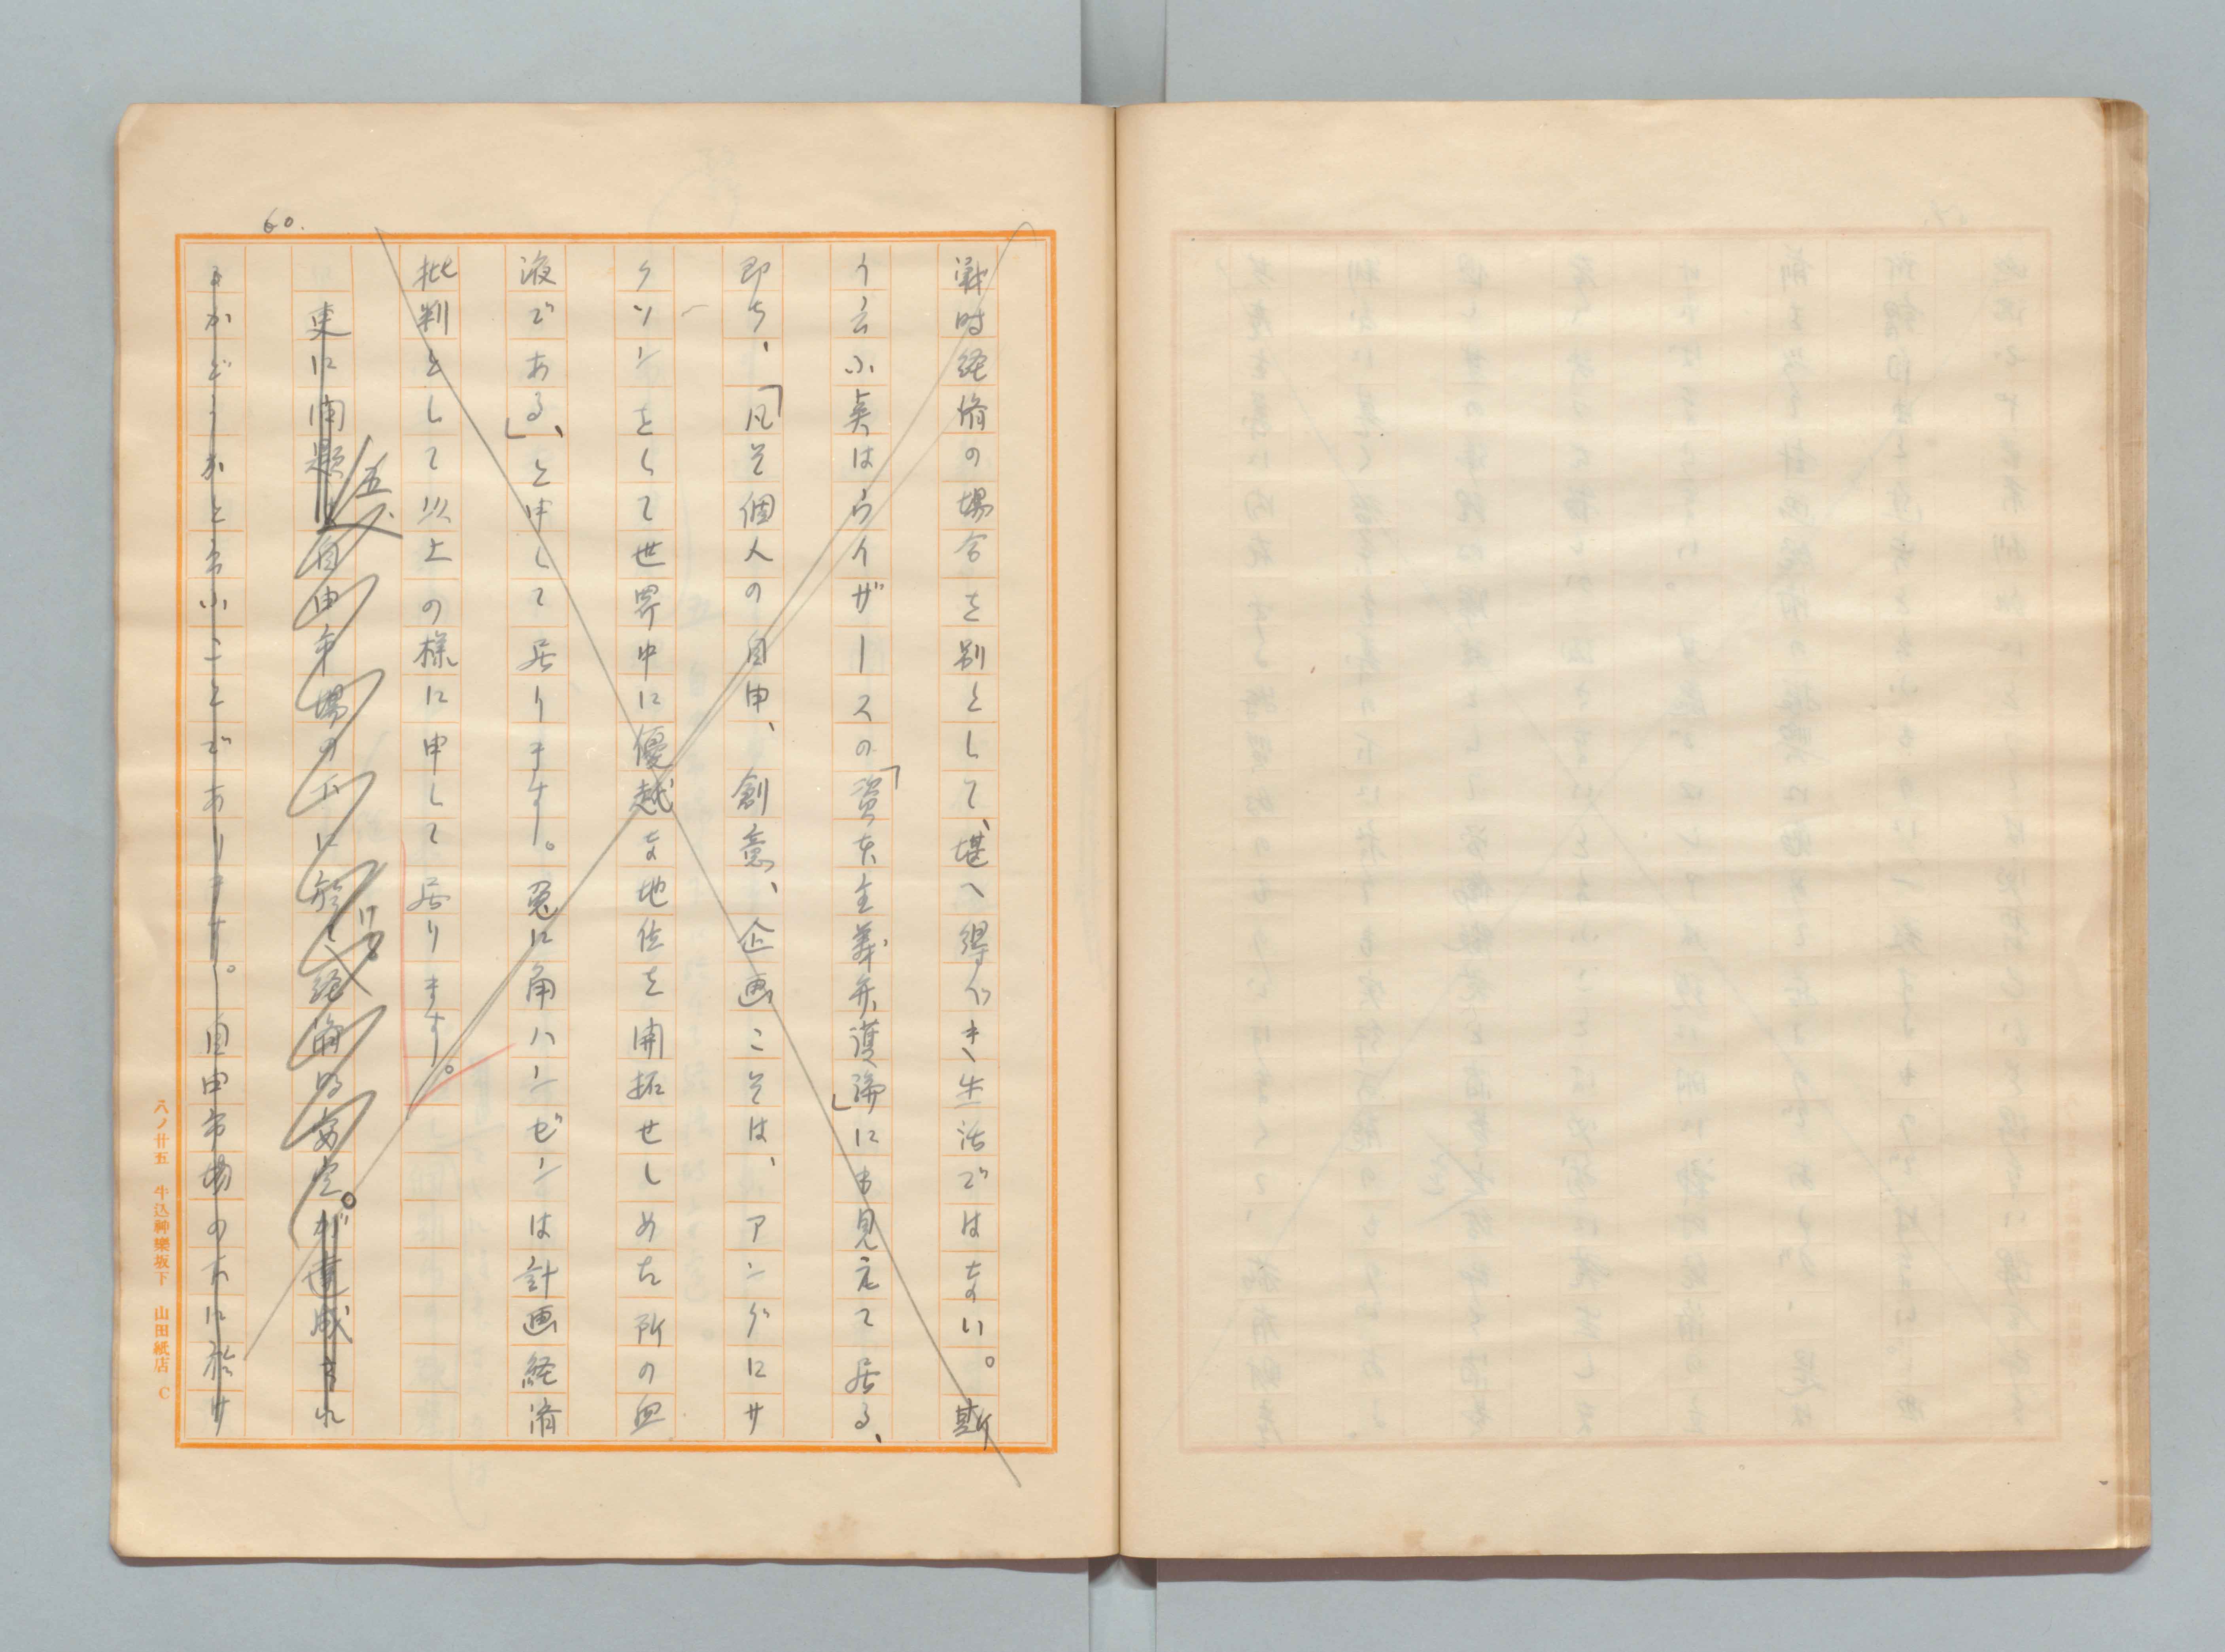 60.
戦時経済の場合を別として、堪へ得べき生活ではない。斯
う云ふ奌はライザースの「資本主義弁護論」にも見えて居る、
即ち、「凡そ個人の自由、創意、企画こそは、アングロサ
クソンをして世界中に優越な地位を開拓せしめた所の血
液である」、と申して居ります。兎に角ハンゼンは計画経済
批判として以上の様に申して居ります。
五、
更に問題は自由市場の下に於て経済的安定。が達成され
ける
るかどうかと云ふことであります。自由市場の下に於け
八ノ廿五 牛込神樂坂下 山田紙店 C